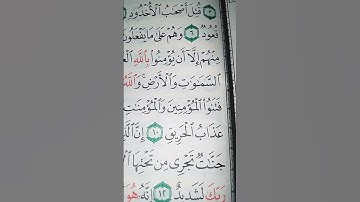 قُتِلَ أَصْحَٰبُ ٱلْأُخْدُودِ
قُعُودٌ ٦ وَهُمْ عَلَىٰ مَا يَفْعَلُونَ
مِنْهُمْ إِلَّآ أَن يُؤْمِنُوا۟ بِٱللَّهِ
ٱلسَّمَٰوَٰتِ وَٱلْأَرْضِ ۚ وَٱللَّهُ
فَتَنُوا۟ ٱلْمُؤْمِنِينَ وَٱلْمُؤْمِنَٰتِ
عَذَابُ ٱلْحَرِيقِ ١٠ إِنَّ
جَنَّٰتٌ تَجْرِى مِن تَحْتِهَا
رَبِّكَ لَشَدِيدٌ ١٢ إِنَّهُۥ هُوَ